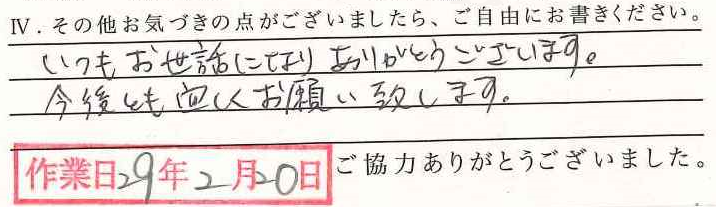 Ⅳ．その他お気づきの点がございましたら、ご自由にお書きください。
いつもお世話になりありがとうございます。
今後とも宜しくお願い致します。
作業日29年2月20日 ご協力ありがとうございました。